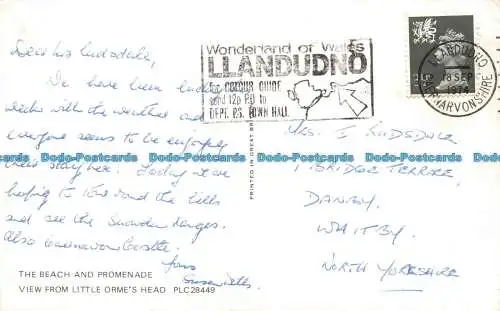 Dear Mrs Rudsdale,
We have been lucky
with the weather and
everyone seems to be enjoying
their stay here. Today we are
hoping to tour round the hills
and see the Snowdon ranges.
Also Caernarvon Castle.
Yours
Wonderland of Wales
LLANDUDNO
For COLOUR GUIDE
send 12p P.O to
DEPT. P.S. TOWN HALL
LLANDUDNO
18 SEP
1974
CAERNARVONSHIRE
PRINTED IN GREAT
MRS. I RUDSDALE
1 BRIDGE TERRACE,
DANBY,
WHITBY.
NORTH YORKSHIRE
THE BEACH AND PROMENADE
VIEW FROM LITTLE ORME'S HEAD PLC28449
Dodo-Postcards Dodo-Postcards Dodo-Postcards Dodo-Postcards Dodo-Postcards